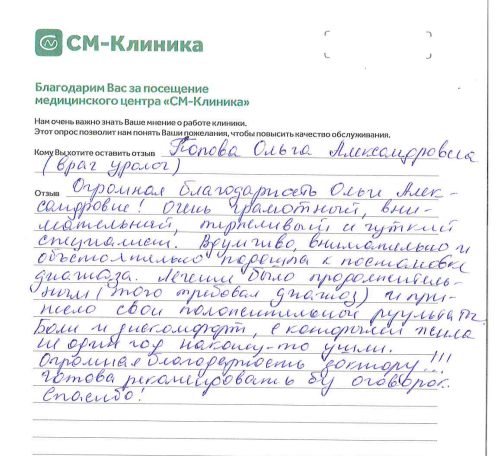 СМ-Клиника
Благодарим Вас за посещение
медицинского центра «СМ-Клиника»
Нам очень важно знать Ваше мнение о работе клиники.
Этот опрос позволит нам понять Ваши пожелания, чтобы повысить качество обслуживания.
Кому Вы хотите оставить отзыв Попова Ольга Александровна
(врач уролог)
Отзыв Огромная благодарность Ольге Алек-
сандровне! Очень грамотный, вни-
мательный, терпеливый и чуткий
специалист. Вдумчиво, внимательно и
обстоятельно подошла к постановке
диагноза. Лечение было продолжитель-
ным (этого требовал диагноз) и при-
несло свой положительный результат.
Боли и дискомфорт, с которыми жила
не один год наконец-то ушли.
Огромная благодарность доктору!!!
Готова рекомендовать без оговорок.
Спасибо!